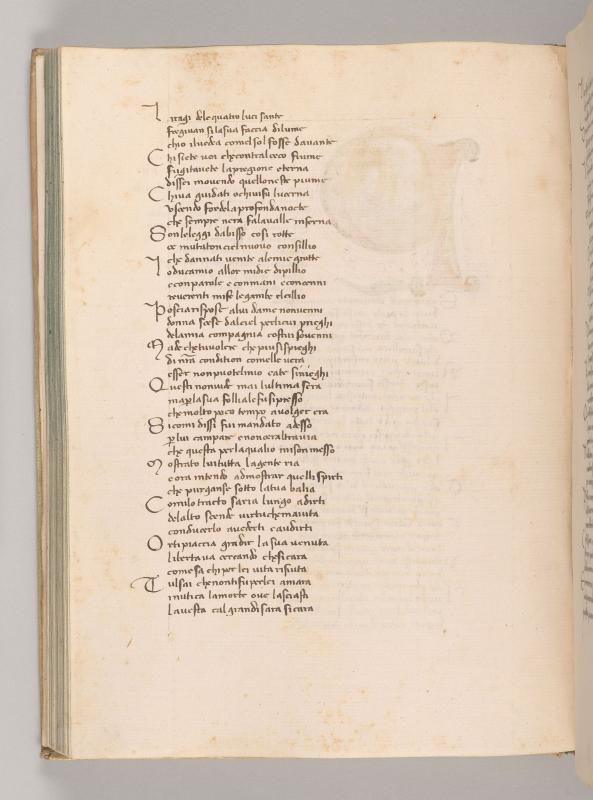 I iragi dele quatro luci sante
fregiavan si la sua faccia di lume
chio il vedea comel sol fosse davante
Chi siete voi che contral ceco fiume
fugita vete la pregione eterna
dissei movendo quelloneste piume
Chi va guidati o chi vi fu lucerna
uscendo for dela profonda nocte
che sempre nera fa la valle inferna
Son le leggi dabisso cosi rotte
o e mutaton ciel nuovo consillio
che dannati venite ale mie grotte
Lo duca mio allor mi die di pillio
e con parole e con mani e con cenni
reverenti mi fe le gambe el cillio
Poscia rispose a lui da me non venni
donna scese dal ciel per li cui prieghi
dela mia compagnia costui sovenni
Ma da che tu volere che piu si spieghi
di nr̃a condition comelle vera
esser non puote l mio cate si nieghi
Questi non vide mai lultima sera
ma per la sua follia le fu si presso
che molto poco tempo a volger era
Si comi dissi fui mandato adesso
ꝑ lui campare e non cera altra via
che questa per la qual io mi son messo
Mostrato lui tutta la gente ria
e ora intendo admostrar quelli spirti
che purganse sotto la tua balia
Comio lo tracto saria lungo a dirti
del alto scende virtu che maiuta
conducerlo a vederti e audirti
Or ti piaccia gradir la sua venuta
liberta va cercando che si cara
come sa chi per lei vita rifiuta
Tul sai che non ti fu per lei amara
in utica la morte ove lasciasti
la vesta cal gran di sara si cara